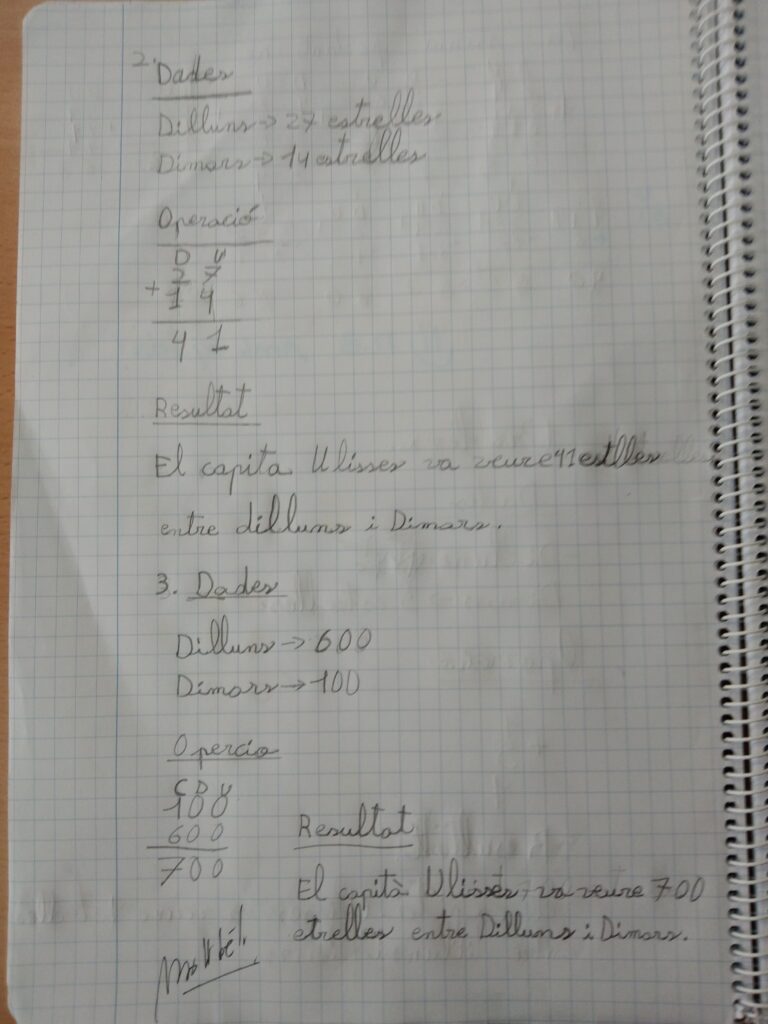 2.
Dades
Dilluns → 27 estrelles
Dimars → 14 estrelles
Operació
D U
2 7
+ 1 4
4 1
Resultat
El capita Ulisses va veure 41 estlles
entre dilluns i Dimars.
3. Dades
Dilluns → 600
Dimars → 100
Opercio
C D U
100
600
700
Resultat
El capità Ulisses va veure 700
etrelles entre Dilluns i Dimars.
Molt bé!